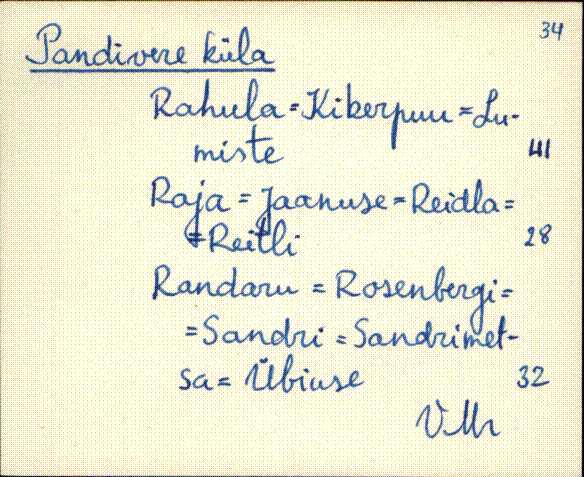 34
Pandivere küla
Rahula = Kikerpuu = Lu-
miste 41
Raja = Jaanuse = Reidla =
= Reitli 28
Randaru = Rosenbergi =
= Sandri = Sandrimet-
sa = Übiuse 32
VMr